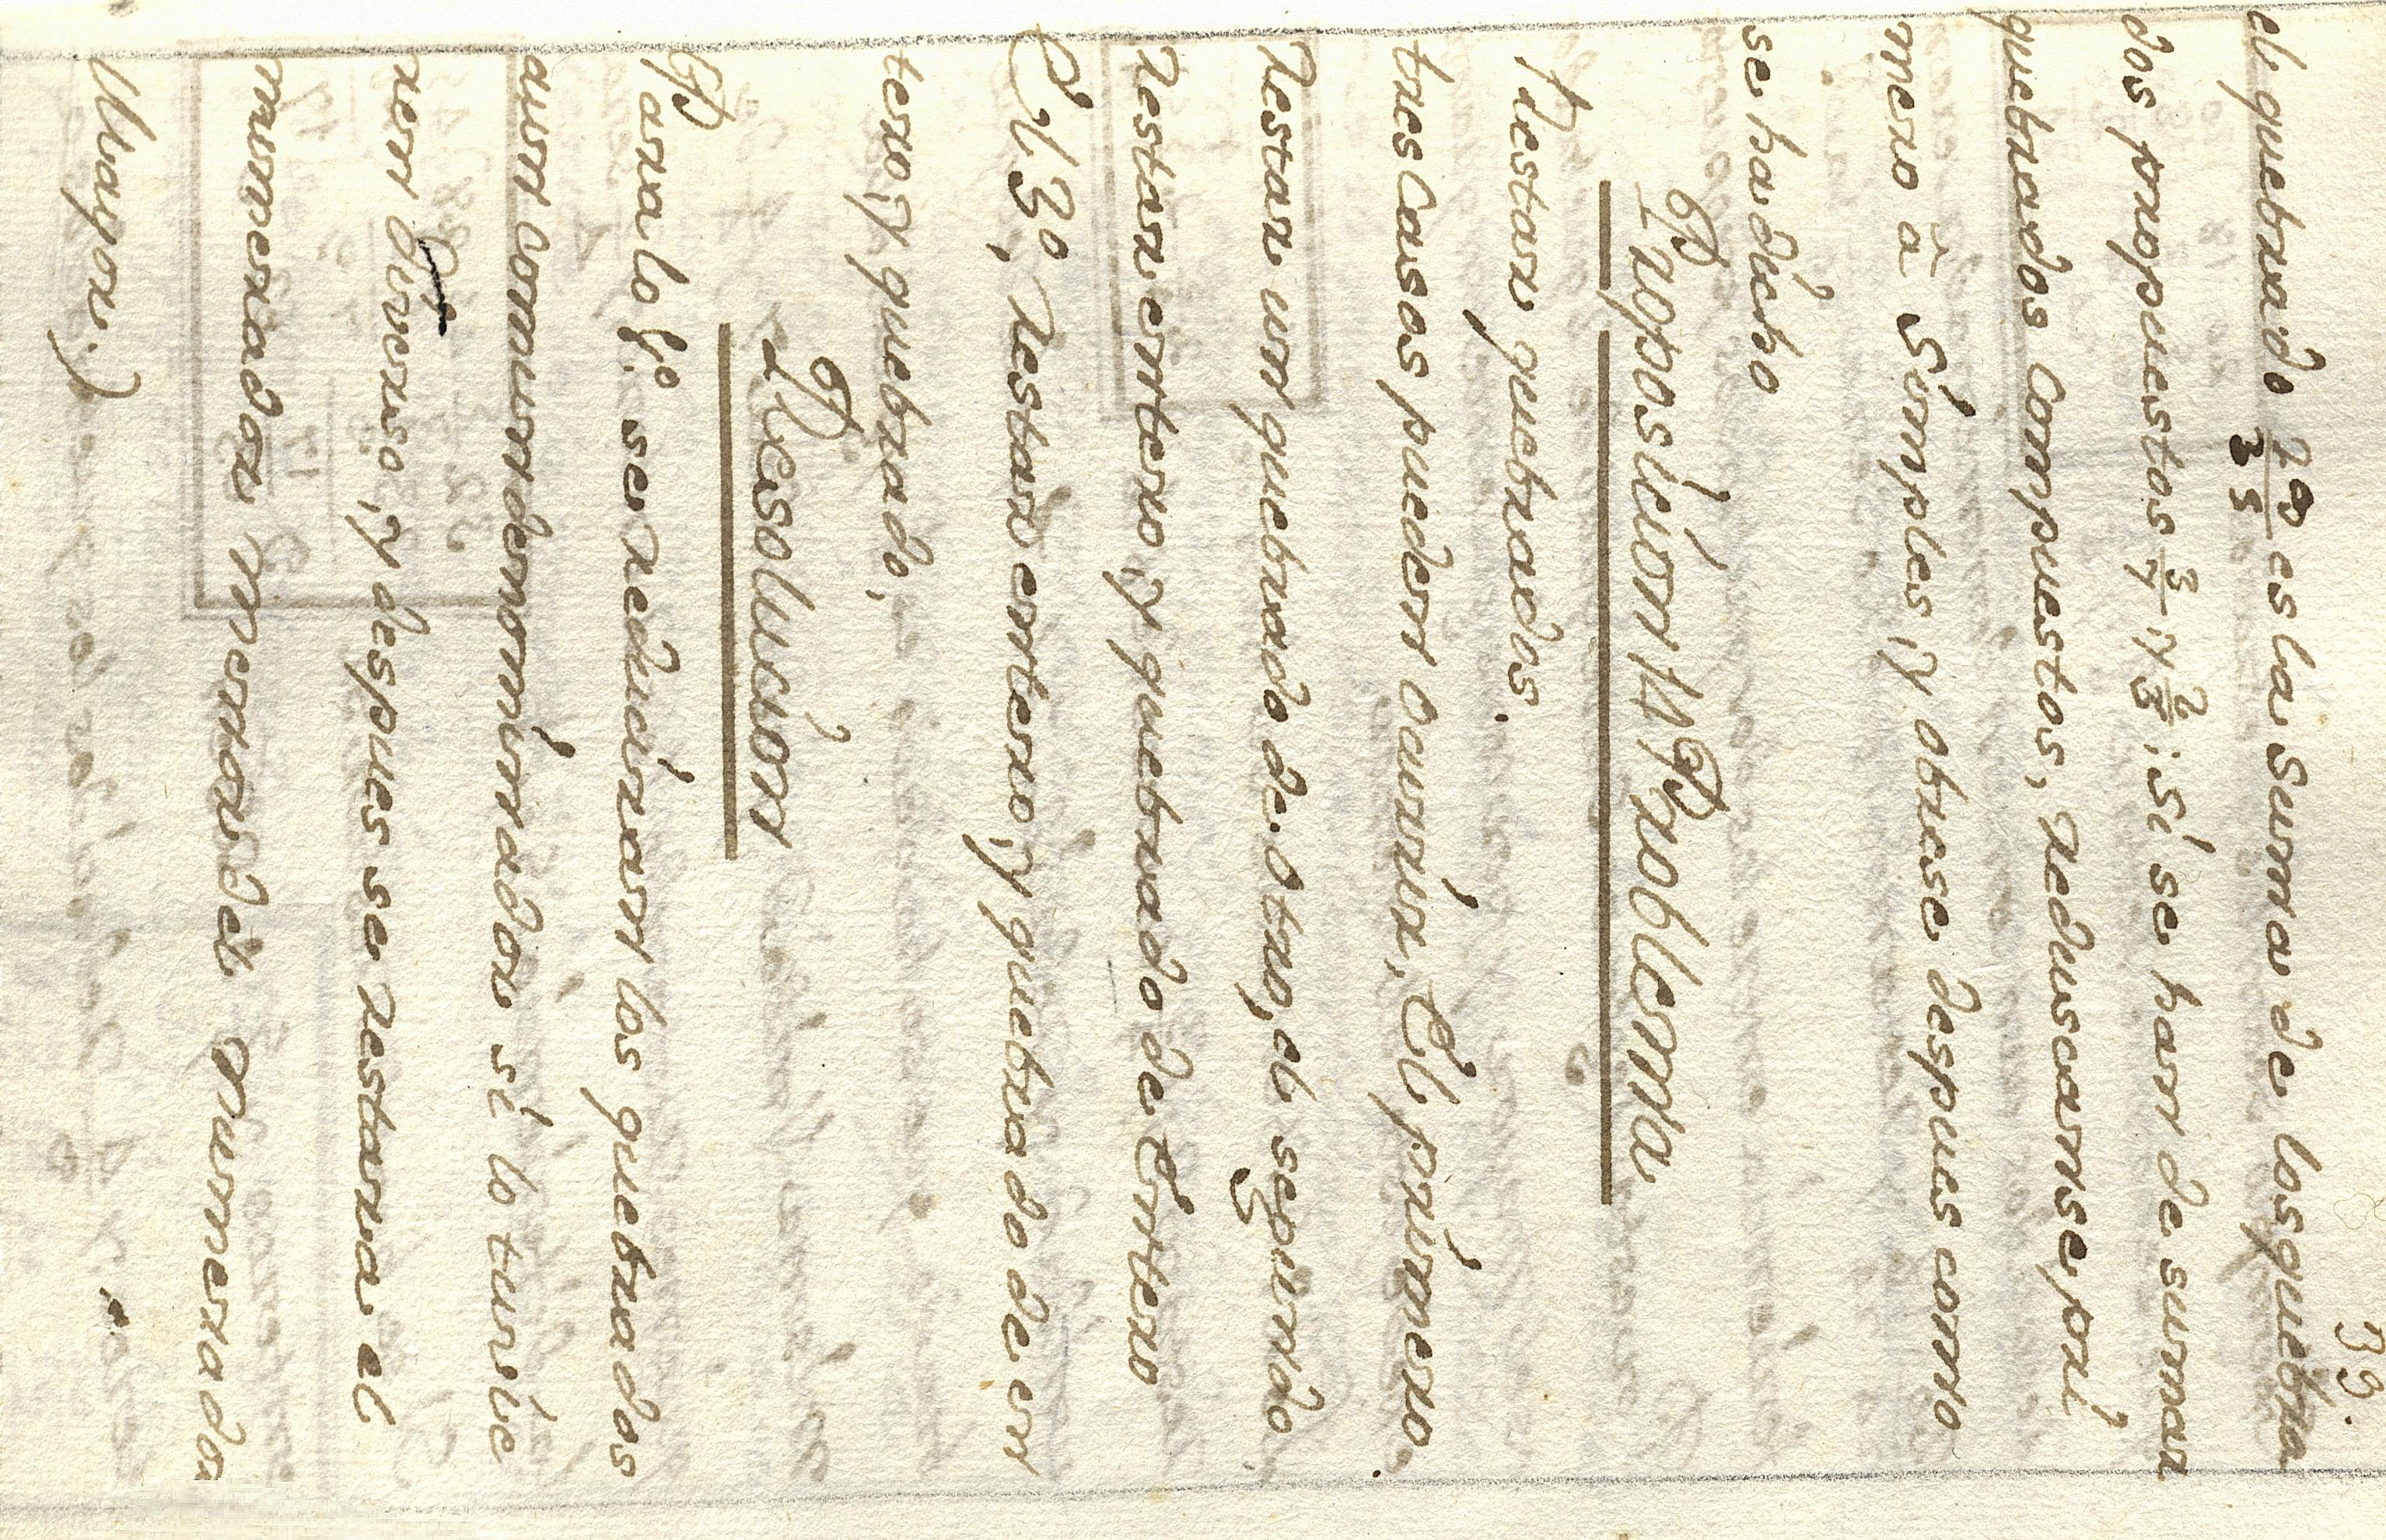 39.
el quebrado 29/35 es la suma de los quebra
dos propuestos 3/7 y 2/5: si se han de sumar
quebrados compuestos, reduscanse pri
mero à simples, y obrese despues como
se ha dicho
Proposicion 14 Problema
Restar quebrados.
tres casos pueden ocurrir. El primero.
Restar un quebrado de otro, el segundo
Restar entero, y quebrado de Entero
El 3º, restar entero, y quebrado de en
tero, y quebrado.
Resolucion
Para lo 1º se reduciran los quebrados
aun comundenominador si lo tuvie
ren diverso, y despues se restara el
numerador menor del numerador
Mayor.)